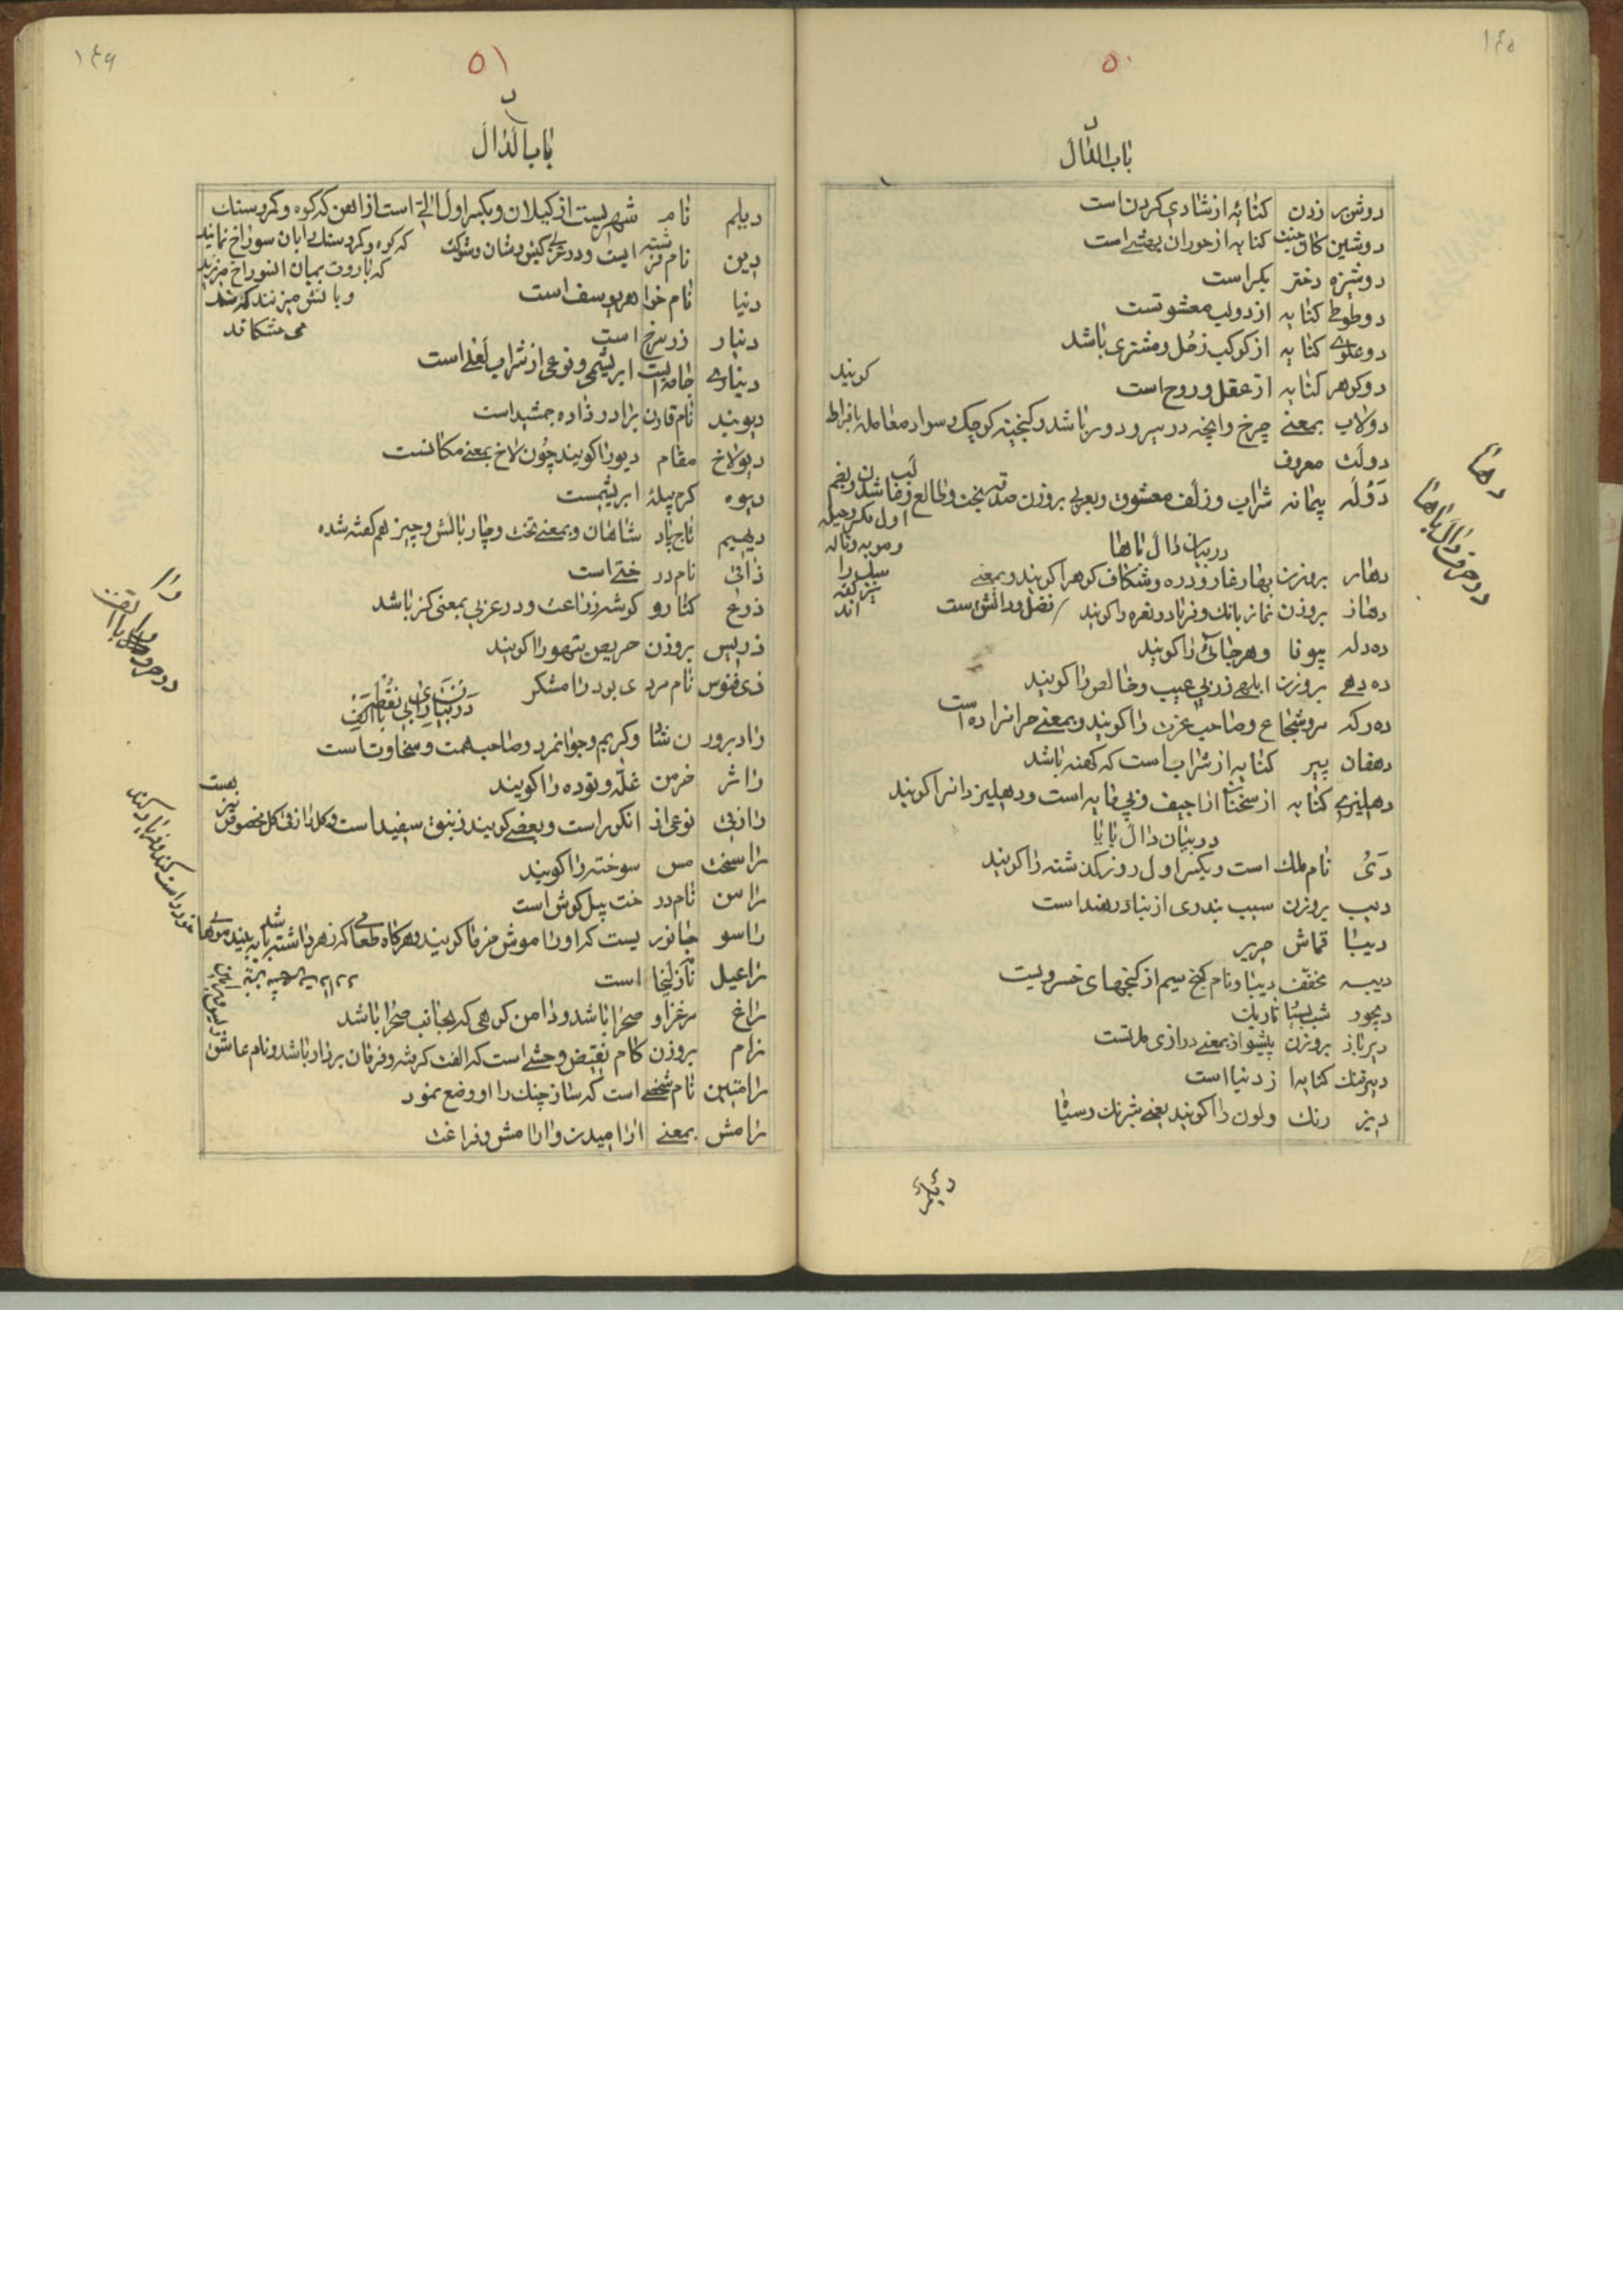 ۱۴۵
۵۰
د
باب الدال
دوش بر زدن کنایه از شادی کردن است
دوشین کان جنت کنایه از حوران بهشتی است
دوشیزه دختر بکر است
دو طوطی کنایه از دو لب معشوقست
دو علوی کنایه از کوکب زحل و مشتری باشد
دو کوهر کنایه از عقل و روح است
دولاب بمعنی چرخ و انچه در سیر و دور باشد و کنجینه کوچک و سوار معامله بافراط کویند
دولت معروف
دوله پیمانه شراب و زلف معشوق و بعربی بروزن بخت و طالع
اول مکر و حیله
و مویه و ناله
در بیان دال با ها
دهار بروزن بهار غار و دره و شکاف کوه را کویند و بمعنی
دهاز بروزن نماز بانک و فریاد و نعره را کویند فضل و دانش است
ده دله بیوفا و هرجائی را کویند
ده دهی بروزن ابلهی زر بی عیب و خالص را کویند
ده رکه مرد شجاع و صاحب عزت را کویند و بمعنی حرامزاده است
دهقان پیر کنایه از شراب است که کهنه باشد
دهلیزی کنایه از سخنان اراجیف و بی مایه است و دهلیزدانرا کویند
در بیان دال با یا
دی نام ملک است و بکسر اول روز کذشته را کویند
دیب بروزن سیب بندری از بنادر هند است
دیبا قماش حریر
دیبه مخفف دیبا و نام کنج سیم از کنجهای خسرویست
دیجور شب تاریک
دیر باز بروزن پیشواز بمعنی درازی مدتست
دیر تنک کنایه از دنیا است
دیز رنک و لون را کویند یعنی شبرنک و سیاه
دیلم
دها
دو حرف دال با ها
۱۴۶
۵۱
د
باب الدال
دیلم نام شهریست از کیلان و بکسر اول التی است از اهن که کوه و کمر و سنک
که کوه و کمر و سنک را بان سوراخ نمایند
که باروت بمیان ان سوراخ میریزند
و باتش میزنند که
می شکافد
دین نام فرشته ایست و در عربی کیش و شان و شوکت
دنیا نام خواهر یوسف است
دینار زر سرخ است
دیناری جامه ایست ابریشمی و نوعی از شراب لعلی است
دیوبند نام قارن برادر زاده جمشید است
دیولاخ مقام دیو را کویند چون لاخ بمعنی مکانست
دیوه کرم پیله ابریشمست
دیهیم تاج پادشاهان و بمعنی تخت و چار بالش و چیز هم کفته شده
نام درختی است
ذرع کنار و کوشه زراعت و در عربی بمعنی کز باشد
ذریس بروزن حریص تیهو را کویند
ذی فنوس نام مردی بود رامشکر
در بیان رای بی نقطه با الف
راد بروزن شاد و کریم و جوانمرد و صاحب همت و سخاوت است
راش خرمن غله و توده را کویند
رازقی نوعی از انکور است و بعضی کویند زنبق سفید است و کل رازقی کل مخصوص نیز هست
راسخت مس سوخته را کویند
راسن نام درخت پیل کوش است
راسو جانوریست که او را موش خرما کویند و هرکاه طعامی که زهر داشته باشد به بیند موی
راعیل نام زلیخا است
راغ مرغزار و صحرا باشد و دامن کوهی که بجانب صحرا باشد
رام بروزن کام نقیض وحشی است که الفت کرفته و فرمان بردار باشد و نام عاشق
رامتین نام شخصی است که ساز چنک را او وضع نمود
رامش بمعنی ارامیدن و ارامش و فراغت
را
دو حرف را با الف